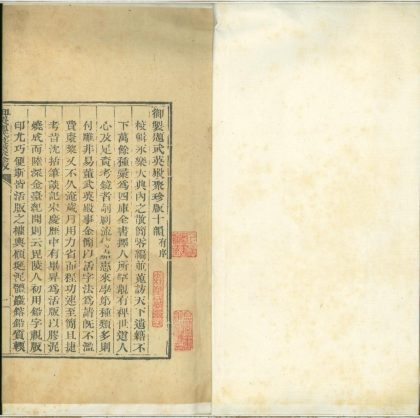 御製題武英殿聚珍版十韻有序
校輯永樂大典內之散簡零編並蒐訪天下遺籍不
下萬餘種彙為四庫全書擇人所罕覯有裨世道人
心及足資考鏡者剞劂流傳嘉惠來學第種類多則
付雕非易董武英殿事金簡以活字法為請既不濫
費棗梨又不久淹歲月用力省而程功速至簡且捷
考昔沈括筆談記宋慶曆中有畢昇為活版以膠泥
燒成而陸深金臺紀聞則云毘陵人初用鉛字視版
印尤巧便斯皆活版之權輿顧埏泥體麤鎔鉛質輭